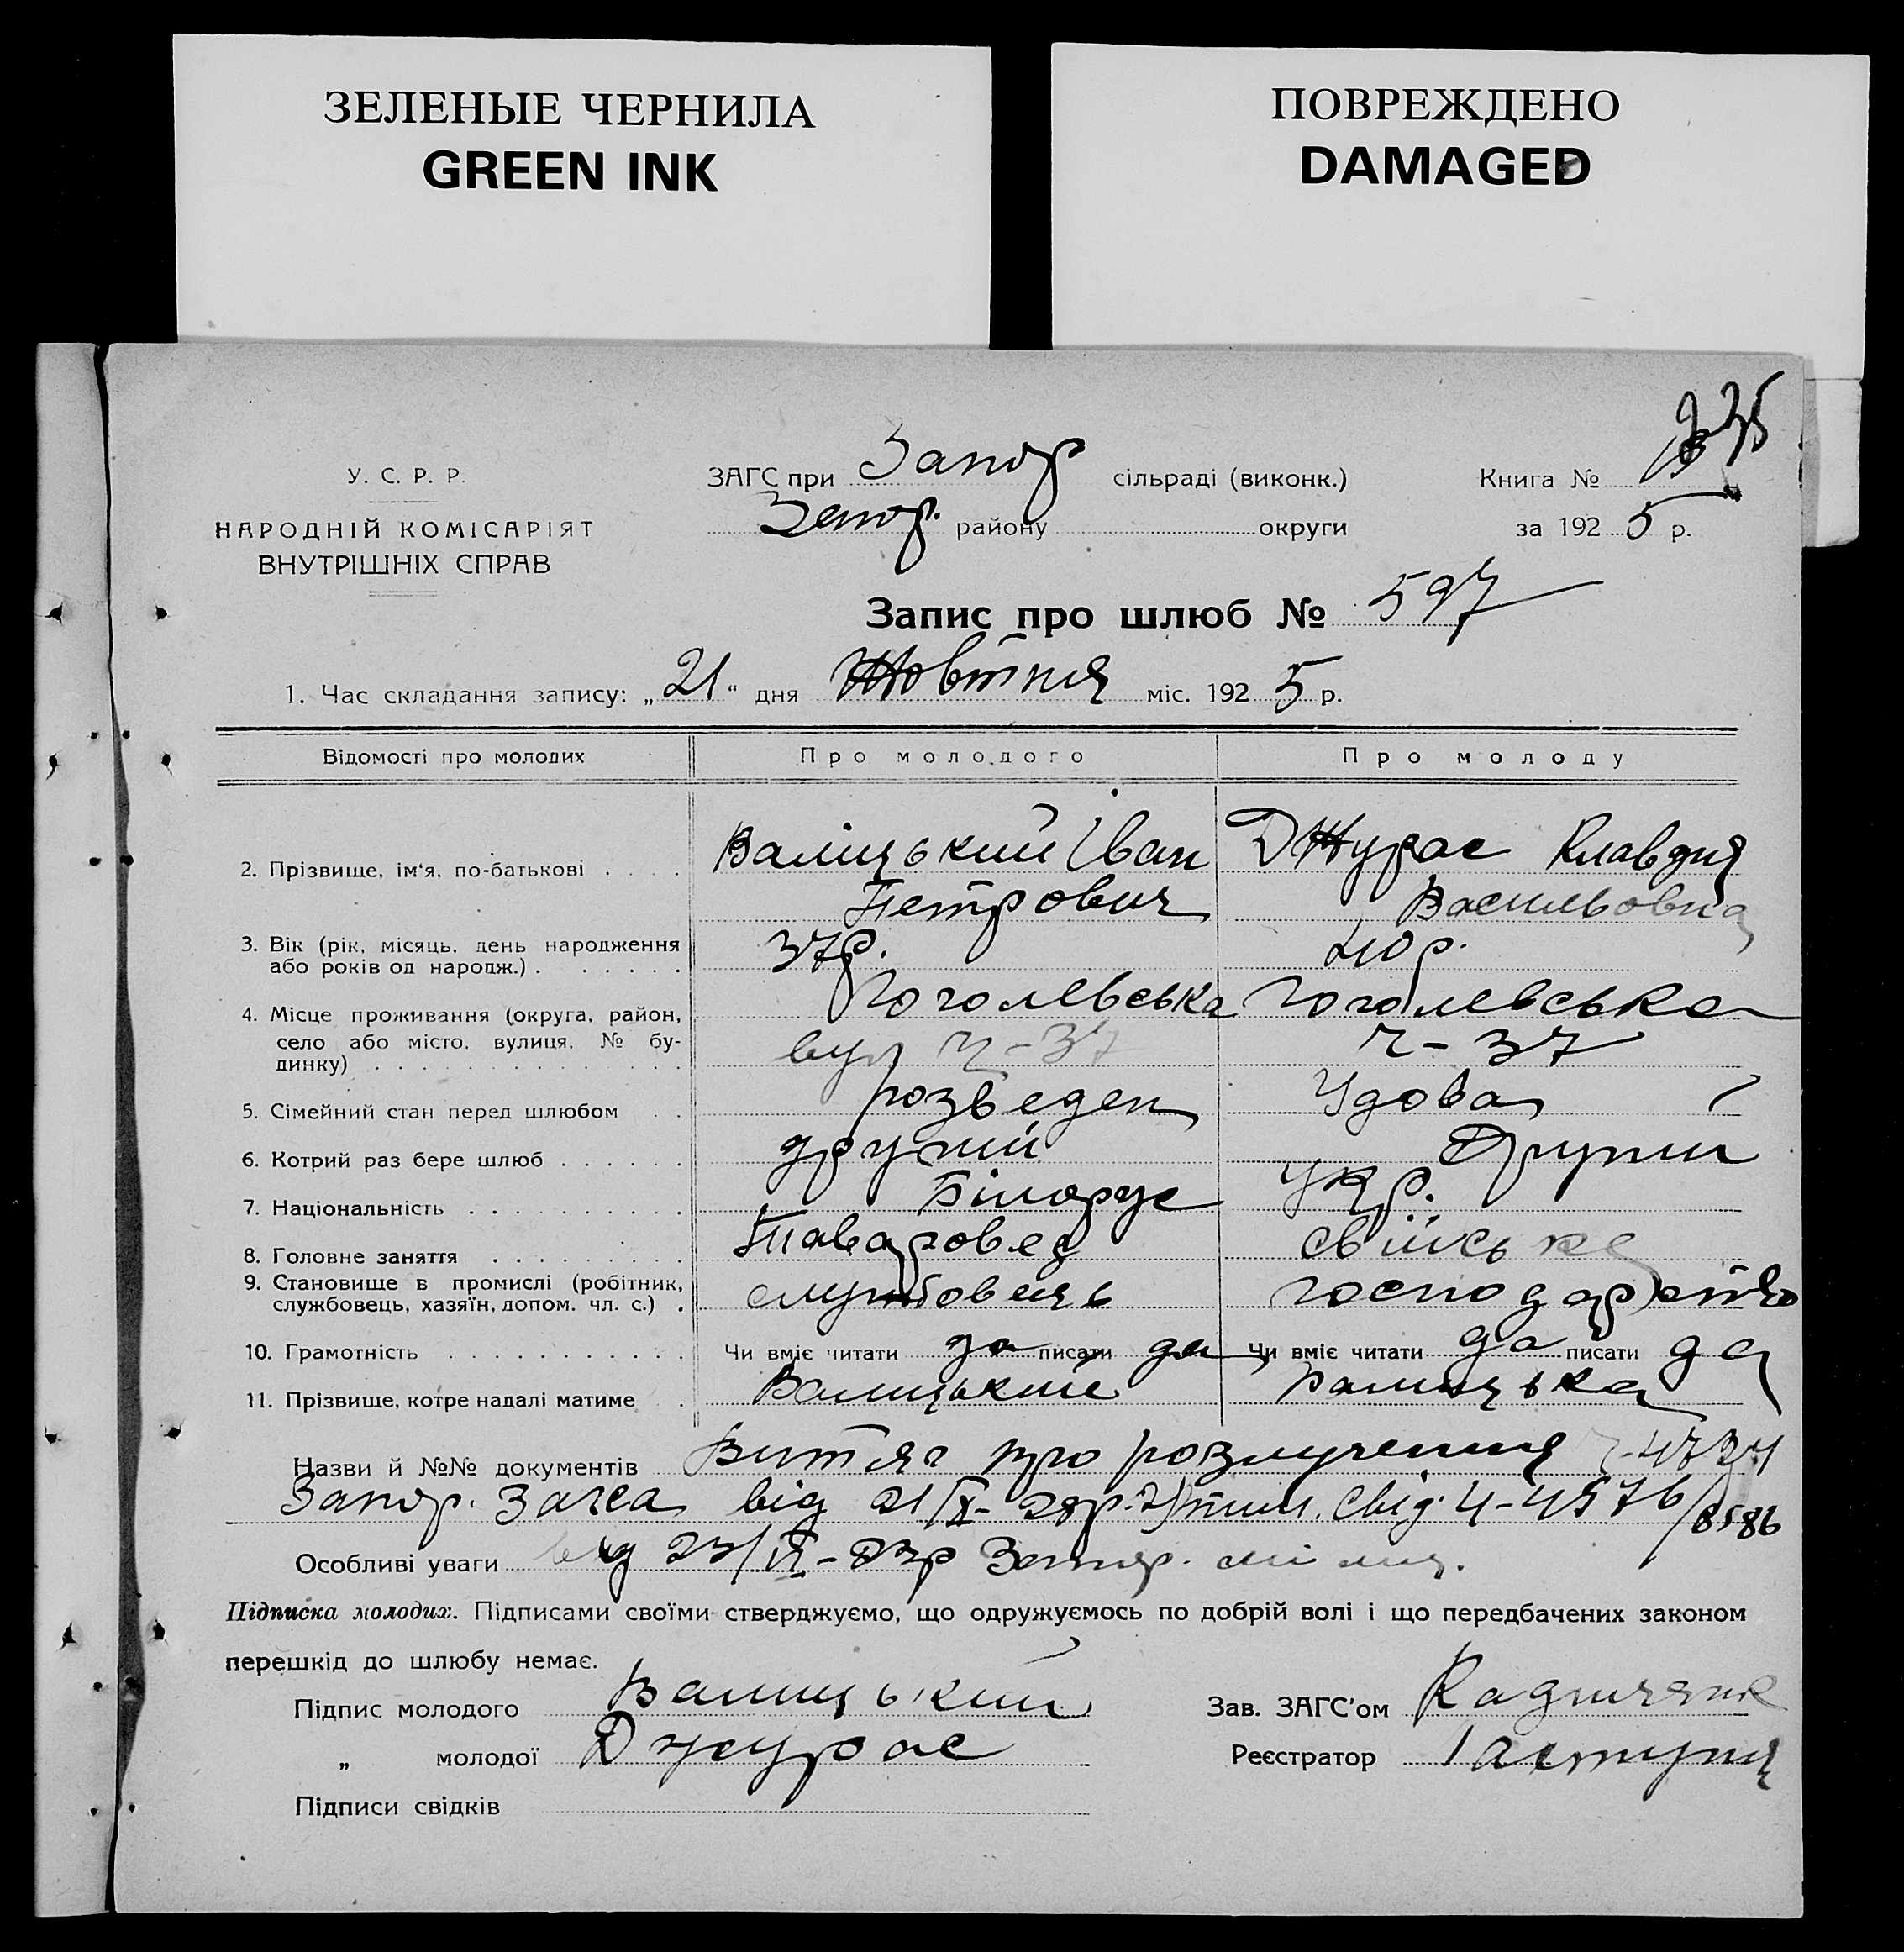 ЗЕЛЕНЫЕ ЧЕРНИЛА
GREEN INK
ПОВРЕЖДЕНО
DAMAGED
У. С. Р. Р.
НАРОДНІЙ КОМІСАРІЯТ
ВНУТРІШНІХ СПРАВ
ЗАГС при Запор сільраді (виконк.)
Запор. району округи
Книга №
за 1925 р.
Запис про шлюб № 597
1. Час складання запису: „21“ дня Жовтня міс. 1925 р.
Відомості про молодих Про молодого Про молоду
2. Прізвище, ім'я, по-батькові Валицький Іван Джурас Клавдия
Петрович Васильовна
3. Вік (рік, місяць, день народження 37р. 40р.
або років од народж.)
4. Місце проживання (округа, район, Гоголевська Гоголевська
село або місто, вулиця, № бу- вул Ч-37 Ч-37
динку)
5. Сімейний стан перед шлюбом розведен Удова
6. Котрий раз бере шлюб другий Другий
7. Національність Білорус Укр.
8. Головне заняття Таваровед свійське
9. Становище в промислі (робітник, службовець господарство
службовець, хазяїн, допом. чл. с.)
10. Грамотність Чи вміє читати да писати да Чи вміє читати да писати да
11. Прізвище, котре надалі матиме Валицький Валицька
Назви й №№ документів Витяг про розлучення
Запор. Загса від 21/ 2) тим. свід. Ч-4576/8586
Особливі уваги від 23/ Запор. міліц.
Підписка молодих. Підписами своїми стверджуємо, що одружуємось по добрій волі і що передбачених законом
перешкід до шлюбу немає.
Підпис молодого Валицький
„ молодої Джурас
Підписи свідків
Зав. ЗАГС'ом
Реєстратор